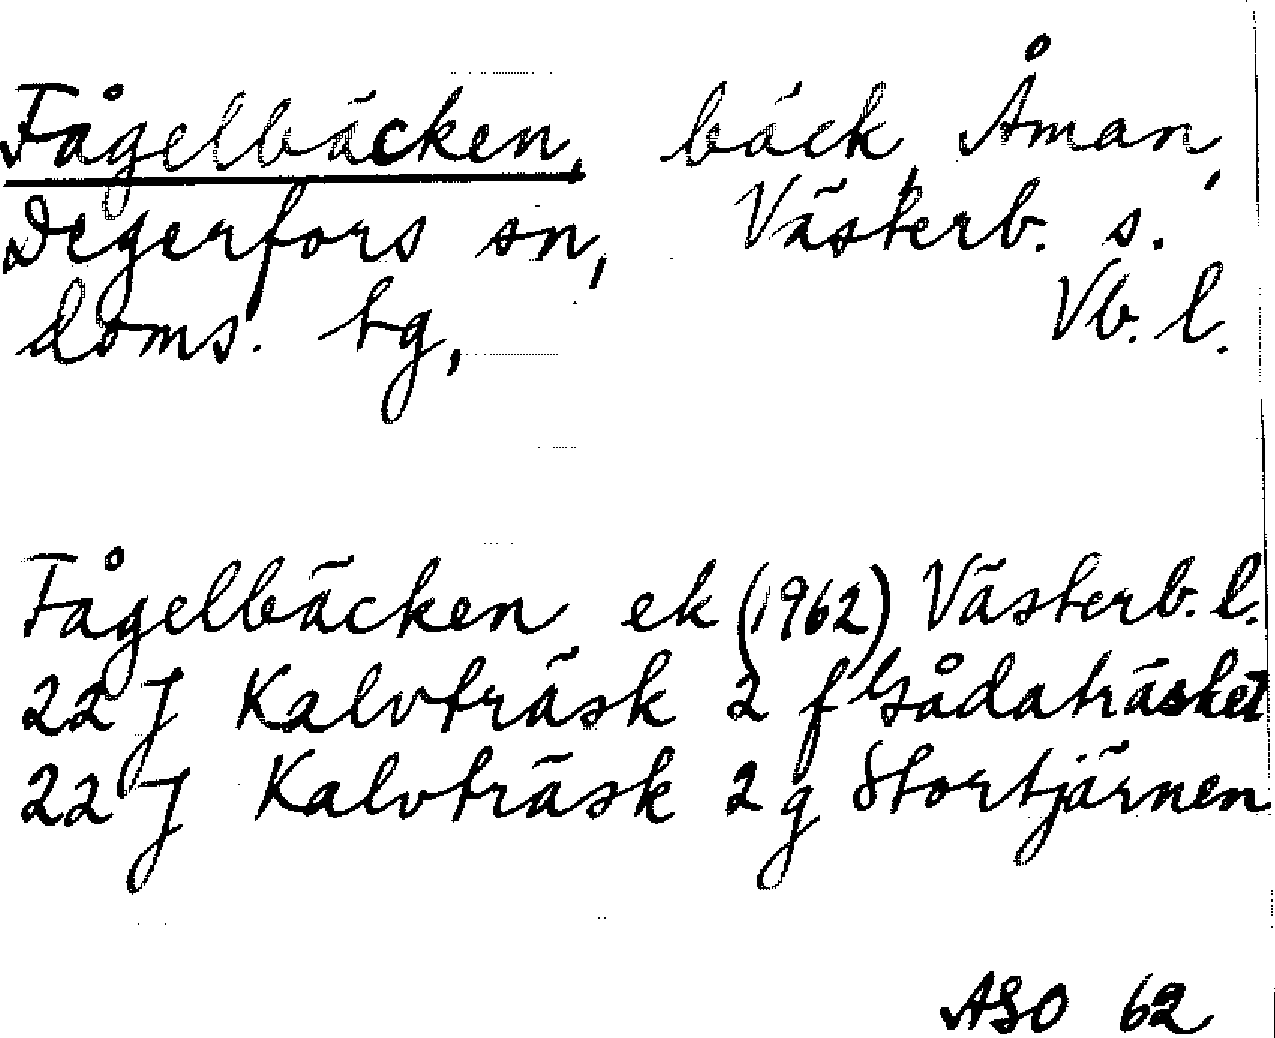 Fågelbäcken, bäck, Åman,
Degerfors sn, Västerb. s.
doms. tg, Vb. l.
Fågelbäcken ek (1962) Västerb. l.
22 J Kalvträsk 2 f Gådaträsket
22 J Kalvträsk 2 g Stortjärnen
ASO 62